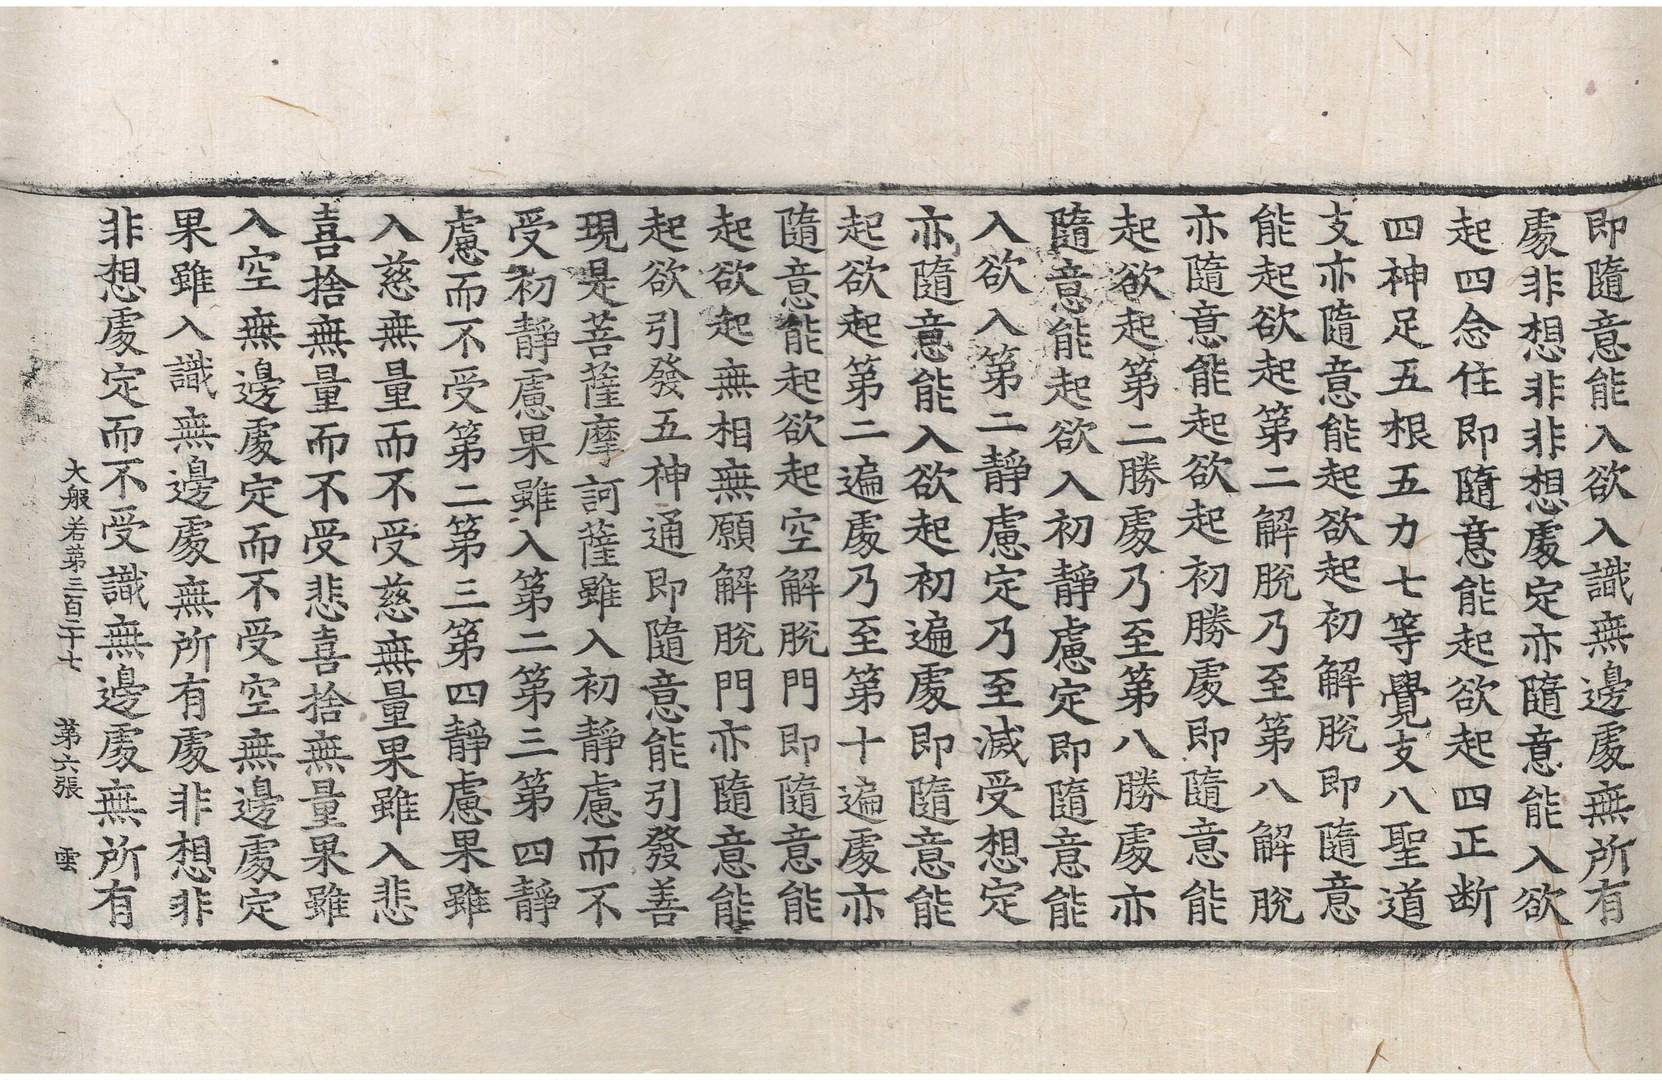 即隨意能入欲入識無邊處無所有
處非想非非想處定亦隨意能入欲
起四念住即隨意能起欲起四正斷
四神足五根五力七等覺支八聖道
支亦隨意能起欲起初解脫即隨意
能起欲起第二解脫乃至第八解脫
亦隨意能起欲起初勝處即隨意能
起欲起第二勝處乃至第八勝處亦
隨意能起欲入初靜慮定即隨意能
入欲入第二靜慮定乃至滅受想定
亦隨意能入欲起初遍處即隨意能
起欲起第二遍處乃至第十遍處亦
隨意能起欲起空解脫門即隨意能
起欲起無相無願解脫門亦隨意能
起欲引發五神通即隨意能引發善
現是菩薩摩訶薩雖入初靜慮而不
受初靜慮果雖入第二第三第四靜
慮而不受第二第三第四靜慮果雖
入慈無量而不受慈無量果雖入悲
喜捨無量而不受悲喜捨無量果雖
入空無邊處定而不受空無邊處定
果雖入識無邊處無所有處非想非
非想處定而不受識無邊處無所有
大般若第三百二十七 第六張 雲